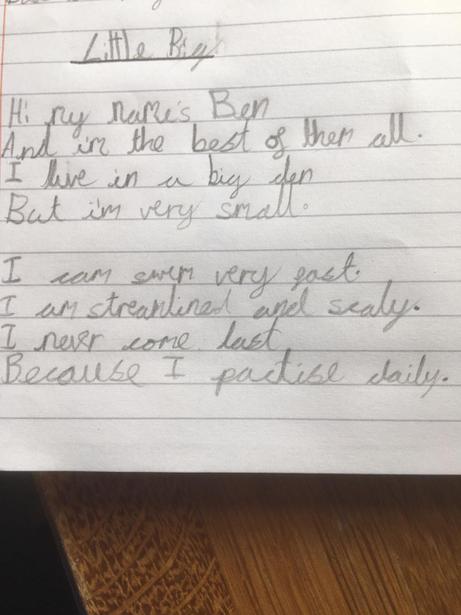 Little Big
Hi my name's Ben
And im the best of them all.
I live in a big den
But i'm very small.
I can swim very fast.
I am streamlined and scaly.
I never come last
Because I pactise daily.